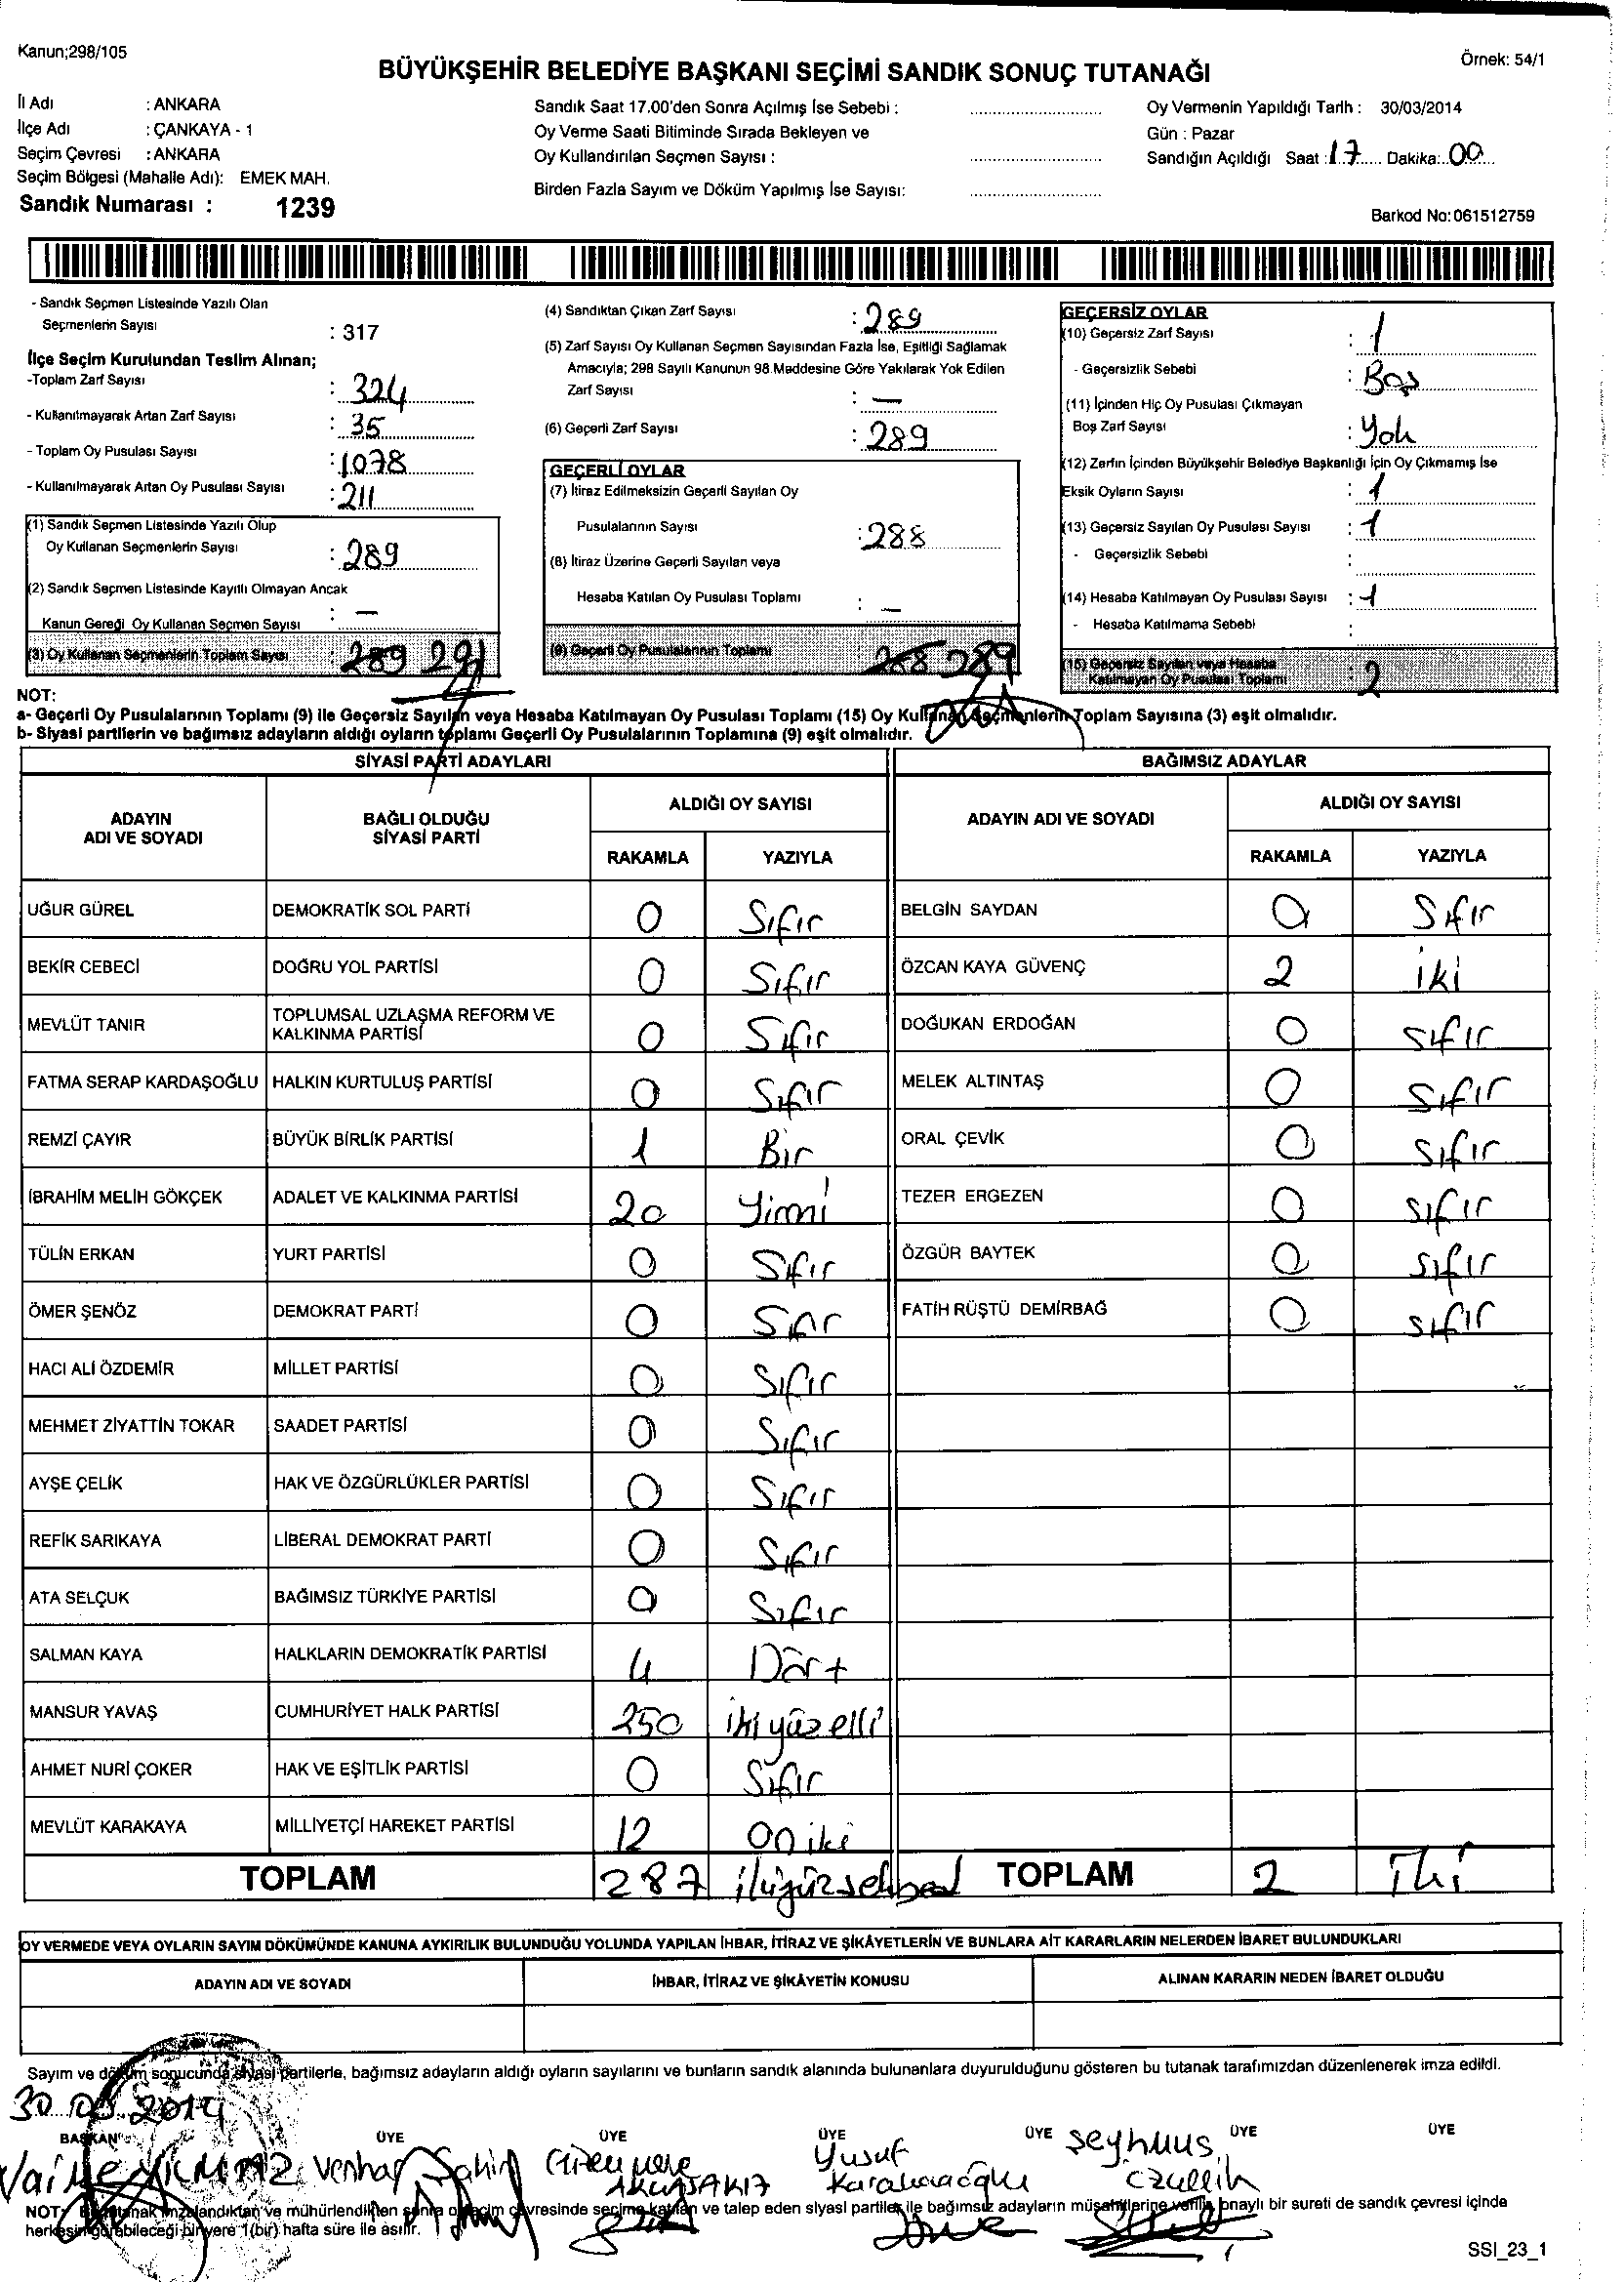 Kanun;298/105
Örnek: 54/1
BÜYÜKŞEHİR BELEDİYE BAŞKANI SEÇİMİ SANDIK SONUÇ TUTANAĞI
İl Adı : ANKARA
İlçe Adı : ÇANKAYA - 1
Seçim Çevresi : ANKARA
Seçim Bölgesi (Mahalle Adı): EMEK MAH.
Sandık Numarası : 1239
Sandık Saat 17.00'den Sonra Açılmış İse Sebebi :
Oy Verme Saati Bitiminde Sırada Bekleyen ve
Oy Kullandırılan Seçmen Sayısı :
Birden Fazla Sayım ve Döküm Yapılmış İse Sayısı:
Oy Vermenin Yapıldığı Tarih : 30/03/2014
Gün : Pazar
Sandığın Açıldığı Saat : 17 Dakika: 00
Barkod No:061512759
- Sandık Seçmen Listesinde Yazılı Olan
Seçmenlerin Sayısı : 317
İlçe Seçim Kurulundan Teslim Alınan;
-Toplam Zarf Sayısı : 324
- Kullanılmayarak Artan Zarf Sayısı : 35
- Toplam Oy Pusulası Sayısı : 1078
- Kullanılmayarak Artan Oy Pusulası Sayısı : 211
(1) Sandık Seçmen Listesinde Yazılı Olup
Oy Kullanan Seçmenlerin Sayısı : 289
(2) Sandık Seçmen Listesinde Kayıtlı Olmayan Ancak
Kanun Gereği Oy Kullanan Seçmen Sayısı : —
(3) Oy Kullanan Seçmenlerin Toplam Sayısı : 289 291
(4) Sandıktan Çıkan Zarf Sayısı : 289
(5) Zarf Sayısı Oy Kullanan Seçmen Sayısından Fazla İse, Eşitliği Sağlamak
Amacıyla; 298 Sayılı Kanunun 98.Maddesine Göre Yakılarak Yok Edilen
Zarf Sayısı : —
(6) Geçerli Zarf Sayısı : 289
GEÇERLİ OYLAR
(7) İtiraz Edilmeksizin Geçerli Sayılan Oy
Pusulalarının Sayısı : 288
(8) İtiraz Üzerine Geçerli Sayılan veya
Hesaba Katılan Oy Pusulası Toplamı : —
(9) Geçerli Oy Pusulalarının Toplamı 288 289
GEÇERSİZ OYLAR
(10) Geçersiz Zarf Sayısı : 1
- Geçersizlik Sebebi : Boş
(11) İçinden Hiç Oy Pusulası Çıkmayan
Boş Zarf Sayısı : Yok
(12) Zarfın İçinden Büyükşehir Belediye Başkanlığı İçin Oy Çıkmamış İse
Eksik Oyların Sayısı : 1
(13) Geçersiz Sayılan Oy Pusulası Sayısı : 1
- Geçersizlik Sebebi :
(14) Hesaba Katılmayan Oy Pusulası Sayısı : 1
- Hesaba Katılmama Sebebi :
(15) Geçersiz Sayılan veya Hesaba
Katılmayan Oy Pusulası Toplamı : 2
NOT:
a- Geçerli Oy Pusulalarının Toplamı (9) ile Geçersiz Sayılan veya Hesaba Katılmayan Oy Pusulası Toplamı (15) Oy Kullanan Seçmenlerin Toplam Sayısına (3) eşit olmalıdır.
b- Siyasi partilerin ve bağımsız adayların aldığı oyların toplamı Geçerli Oy Pusulalarının Toplamına (9) eşit olmalıdır.
SİYASİ PARTİ ADAYLARI BAĞIMSIZ ADAYLAR
ADAYIN ADI VE SOYADI BAĞLI OLDUĞU SİYASİ PARTİ ALDIĞI OY SAYISI ADAYIN ADI VE SOYADI ALDIĞI OY SAYISI
RAKAMLA YAZIYLA RAKAMLA YAZIYLA
UĞUR GÜREL DEMOKRATİK SOL PARTİ 0 Sıfır BELGİN SAYDAN 0 Sıfır
BEKİR CEBECİ DOĞRU YOL PARTİSİ 0 Sıfır ÖZCAN KAYA GÜVENÇ 2 iki
MEVLÜT TANIR TOPLUMSAL UZLAŞMA REFORM VE KALKINMA PARTİSİ 0 Sıfır DOĞUKAN ERDOĞAN 0 sıfır
FATMA SERAP KARDAŞOĞLU HALKIN KURTULUŞ PARTİSİ 0 Sıfır MELEK ALTINTAŞ 0 Sıfır
REMZİ ÇAYIR BÜYÜK BİRLİK PARTİSİ 1 Bir ORAL ÇEVİK 0 sıfır
İBRAHİM MELİH GÖKÇEK ADALET VE KALKINMA PARTİSİ 20 Yirmi TEZER ERGEZEN 0 sıfır
TÜLİN ERKAN YURT PARTİSİ 0 Sıfır ÖZGÜR BAYTEK 0 sıfır
ÖMER ŞENÖZ DEMOKRAT PARTİ 0 Sıfır FATİH RÜŞTÜ DEMİRBAĞ 0 sıfır
HACI ALİ ÖZDEMİR MİLLET PARTİSİ 0 Sıfır
MEHMET ZİYATTİN TOKAR SAADET PARTİSİ 0 Sıfır
AYŞE ÇELİK HAK VE ÖZGÜRLÜKLER PARTİSİ 0 Sıfır
REFİK SARIKAYA LİBERAL DEMOKRAT PARTİ 0 Sıfır
ATA SELÇUK BAĞIMSIZ TÜRKİYE PARTİSİ 0 Sıfır
SALMAN KAYA HALKLARIN DEMOKRATİK PARTİSİ 4 Dört
MANSUR YAVAŞ CUMHURİYET HALK PARTİSİ 250 ikiyüzelli
AHMET NURİ ÇOKER HAK VE EŞİTLİK PARTİSİ 0 Sıfır
MEVLÜT KARAKAYA MİLLİYETÇİ HAREKET PARTİSİ 12 Oniki
TOPLAM 287 TOPLAM 2 İki
OY VERMEDE VEYA OYLARIN SAYIM DÖKÜMÜNDE KANUNA AYKIRILIK BULUNDUĞU YOLUNDA YAPILAN İHBAR, İTİRAZ VE ŞİKÂYETLERİN VE BUNLARA AİT KARARLARIN NELERDEN İBARET BULUNDUKLARI
ADAYIN ADI VE SOYADI İHBAR, İTİRAZ VE ŞİKÂYETİN KONUSU ALINAN KARARIN NEDEN İBARET OLDUĞU
Sayım ve döküm sonucunda siyasi partilerle, bağımsız adayların aldığı oyların sayılarını ve bunların sandık alanında bulunanlara duyurulduğunu gösteren bu tutanak tarafımızdan düzenlenerek imza edildi.
30 03 2014
BAŞKAN ÜYE ÜYE ÜYE ÜYE ÜYE ÜYE
YILMAZ Şahin Yusuf Seyhmus
NOT: Bu tutanak imzalandıktan ve mühürlendikten sonra o seçim çevresinde seçime katılan ve talep eden siyasi partiler ile bağımsız adayların müşahitlerine verilir, onaylı bir sureti de sandık çevresi içinde
herkesin görebileceği bir yere 1(bir) hafta süre ile asılır.
SSI_23_1